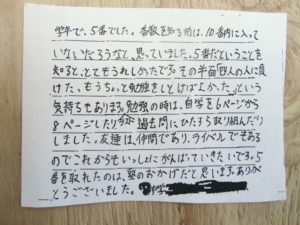 学年で、5番でした。番数を知る前は、10番内に入って
いないだろうなと、思っていました。5番だということを
知ると、とてもうれしかったです。その半面四人の人に負
けた、もうちょっと勉強をしとけばよかった。という
気持ちもあります。勉強の時は、自学を6ページから
8ページしたり 過去問にひたすら取り組んだり
しました。友達は、仲間であり、ライバルでもある
のでこれからもいっしょにがんばっていきたいです。5
番を取れたのは、塾のおかげだと思います。ありが
とうございました。